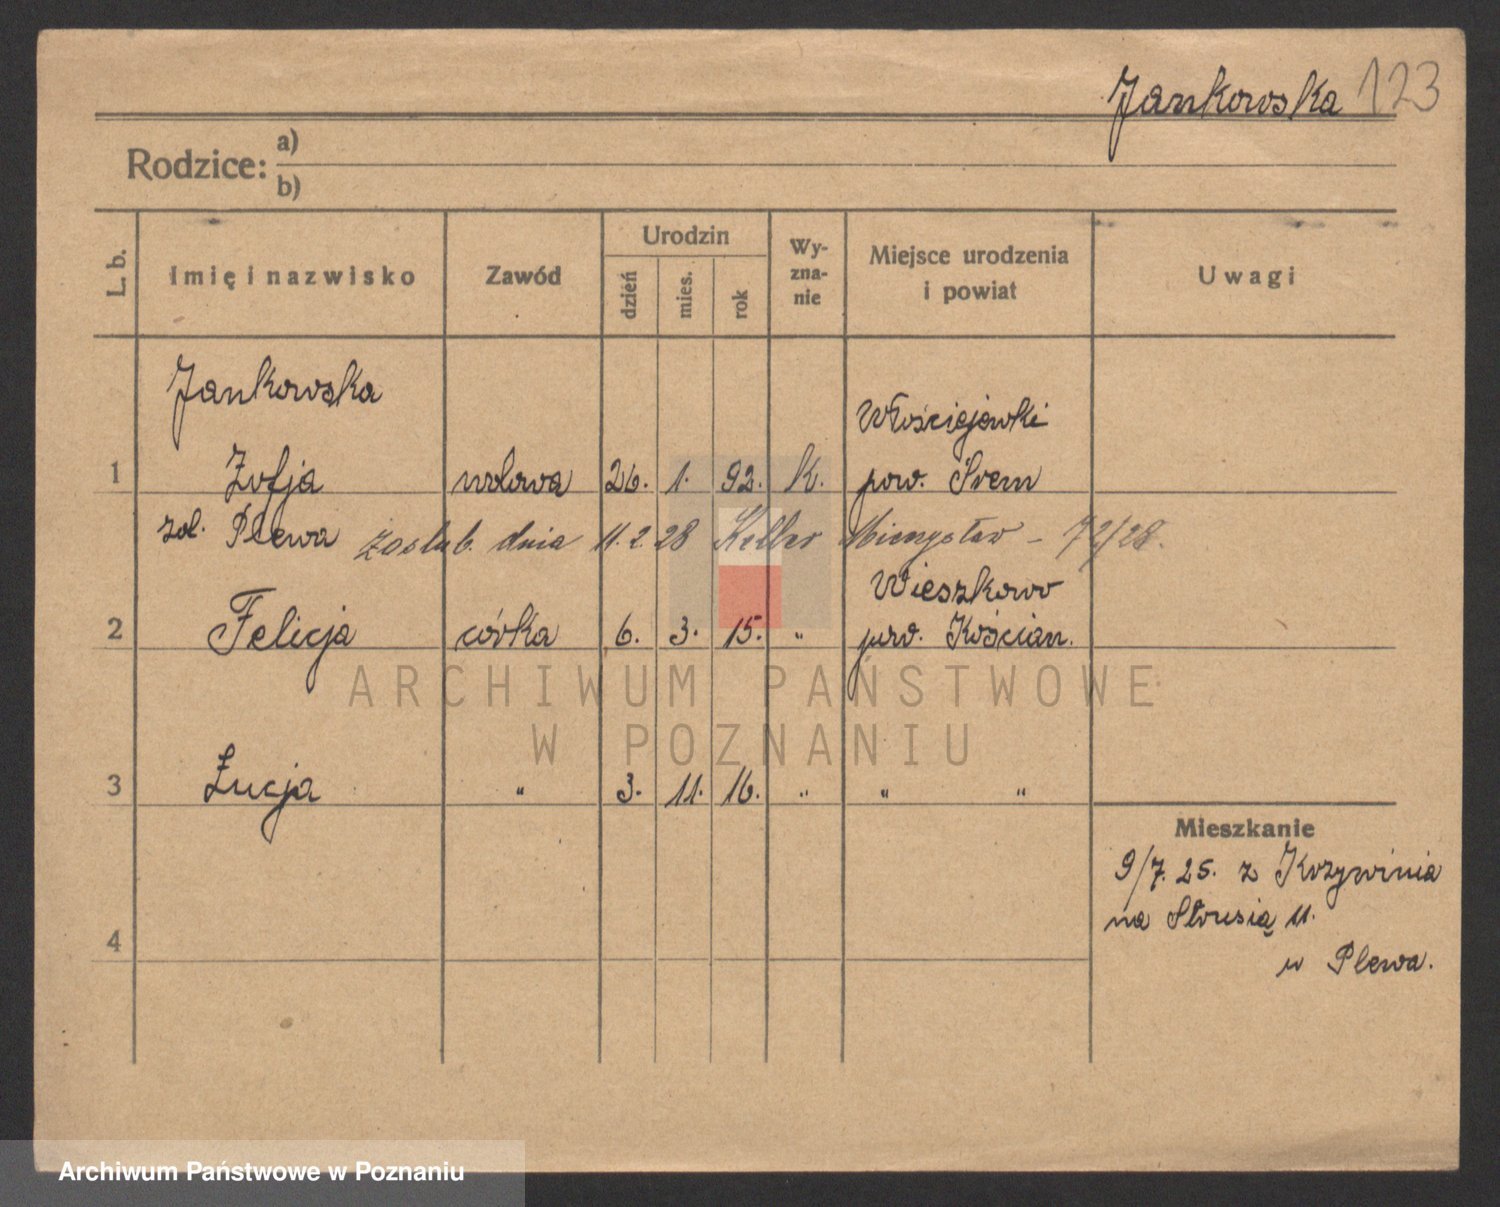 Jankowska 123
Rodzice: a)
b)
L. b.
Imię i nazwisko
Zawód
Urodzin
dzień
mies.
rok
Wy-
zna-
nie
Miejsce urodzenia
i powiat
Uwagi
Jankowska
Włościejewki
1 Zofja wdowa 26. 1. 92. k. pow. Śrem
zol. Plewa zaślub. dnia 11.2.28 Keller Mieczysław - 72/28.
Wieszkowo
2 Felicja córka 6. 3. 15. " pow. Kościan.
3 Łucja " 3. 11. 16. " " "
Mieszkanie
9/7. 25. z Krzywinia
na Strusią 11.
w Plewa.
4
ARCHIWUM PAŃSTWOWE
W POZNANIU
Archiwum Państwowe w Poznaniu